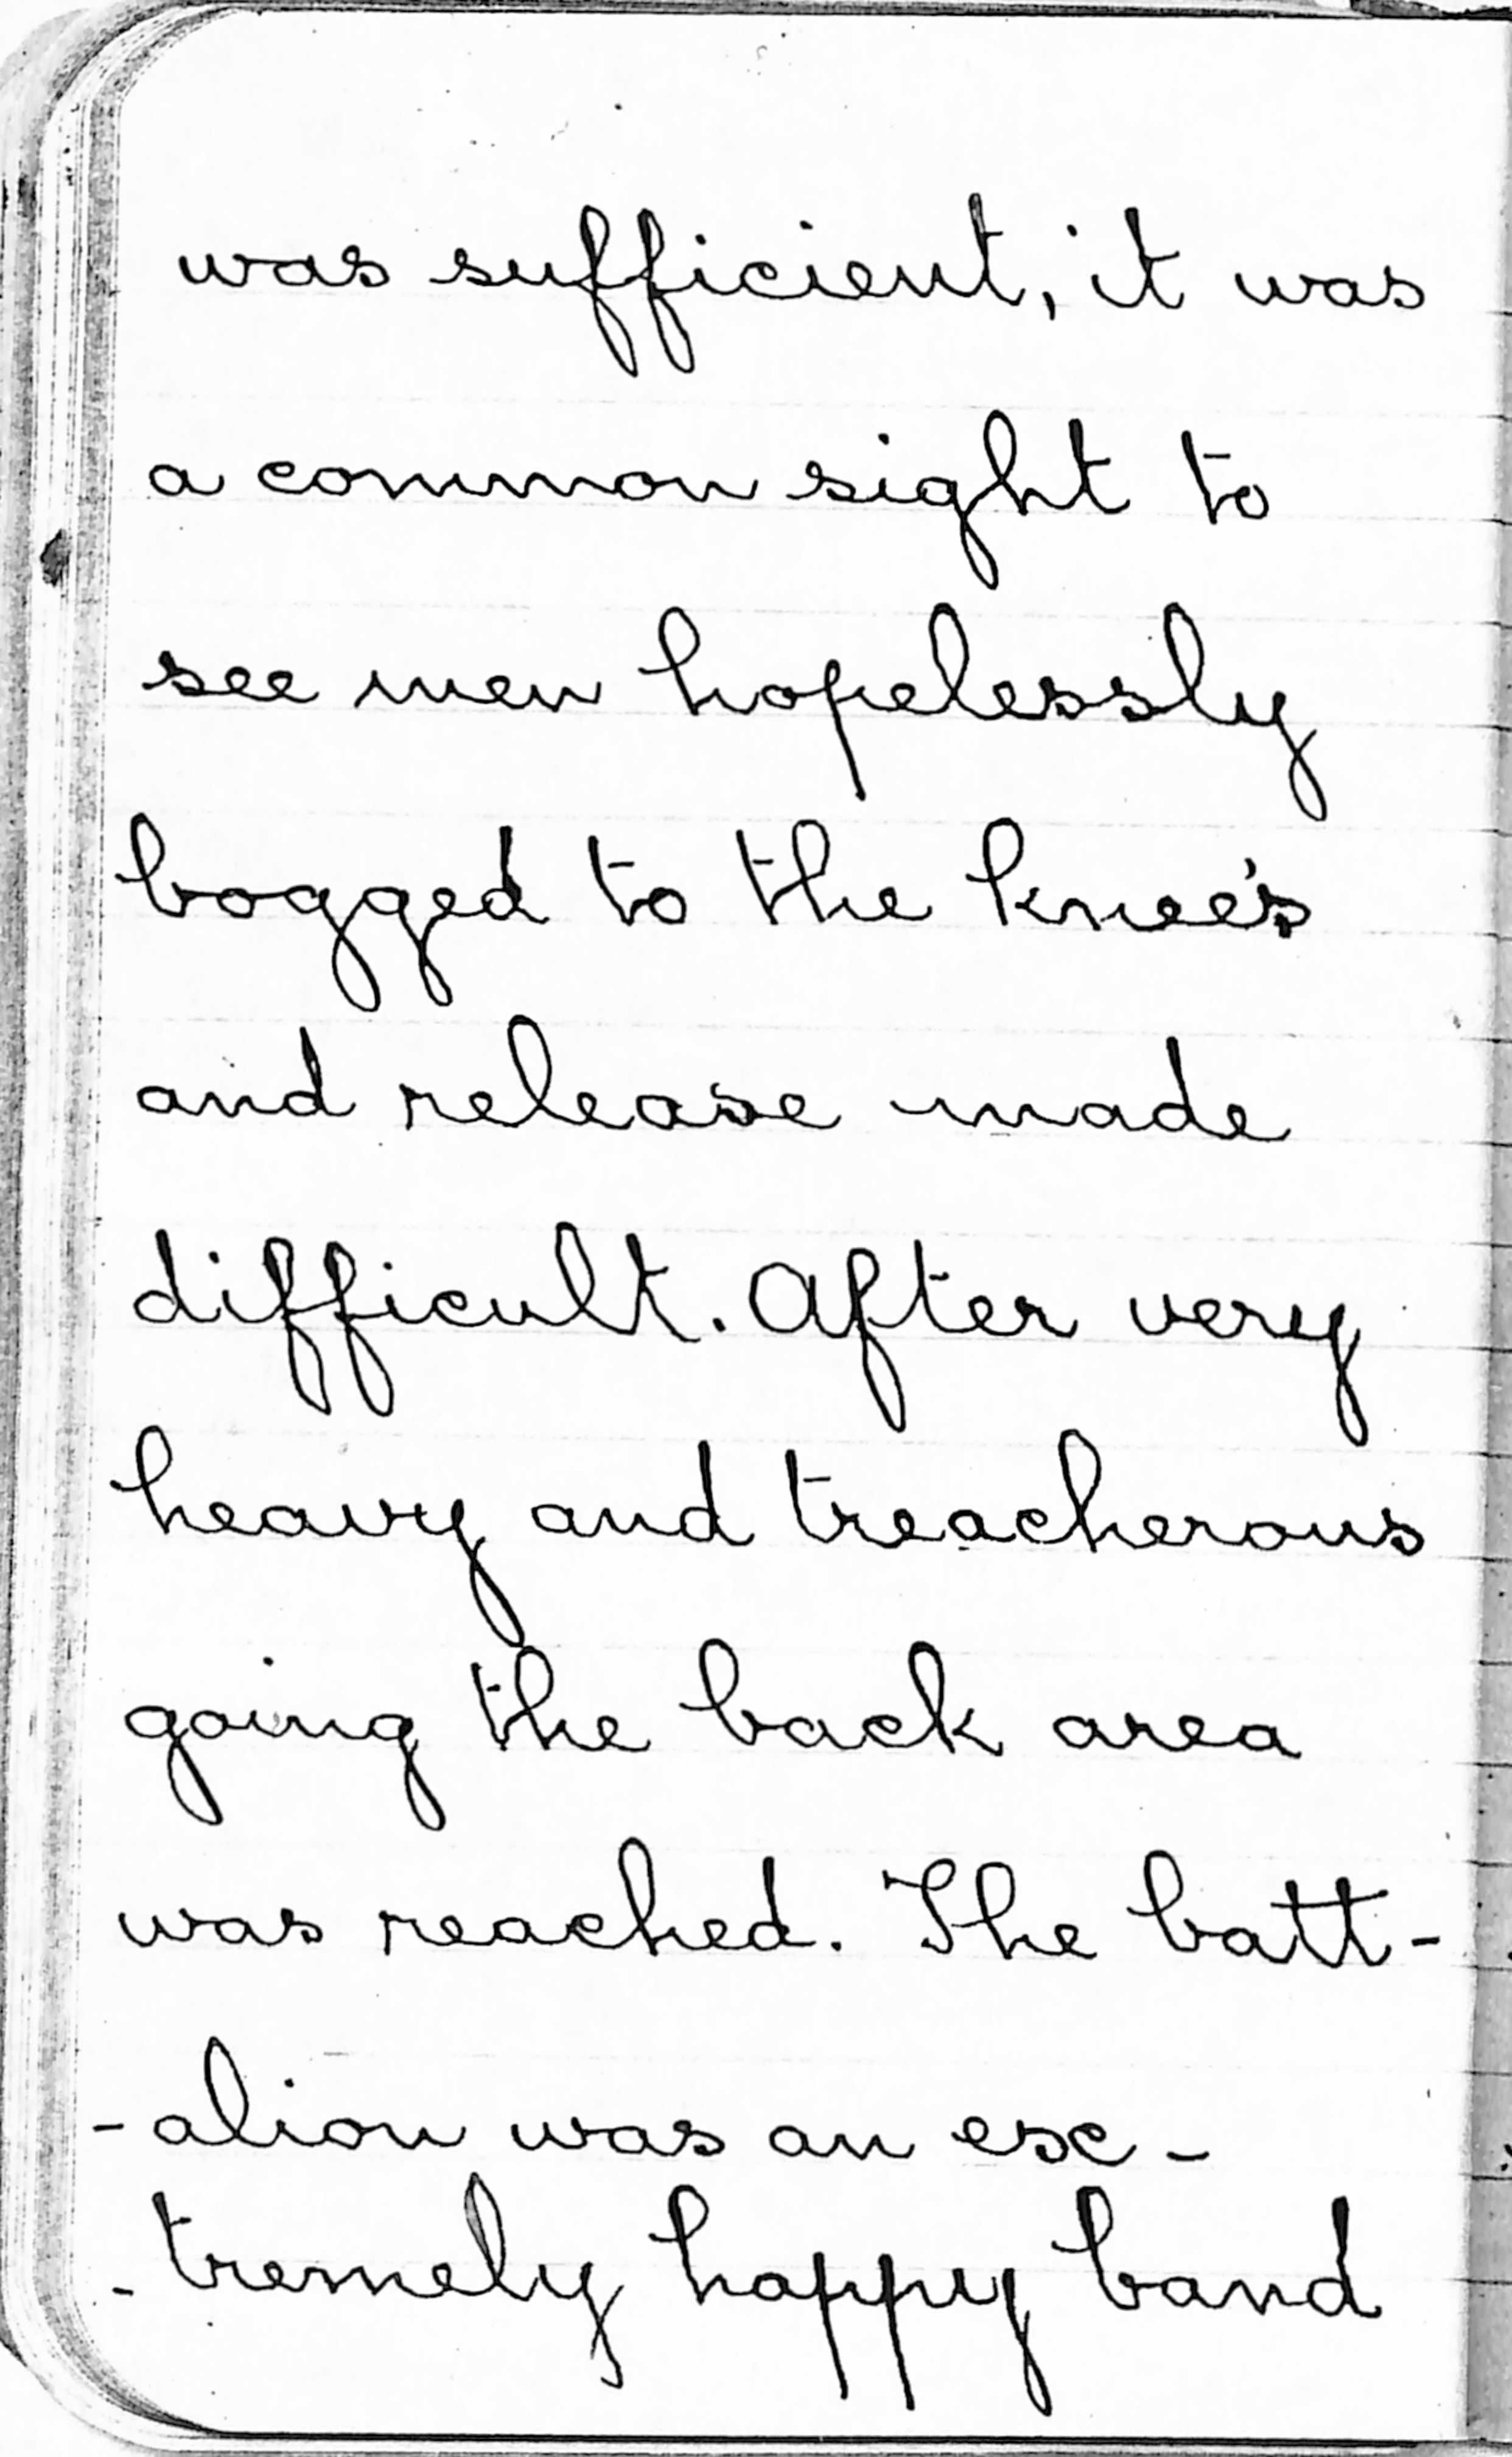 was sufficient, it was
a common sight to
see men hopelessly
bogged to the knee's
and release made
difficult. After very
heavy and treacherous
going the back area
was reached. The batt-
-alion was an ex-
-tremely happy band